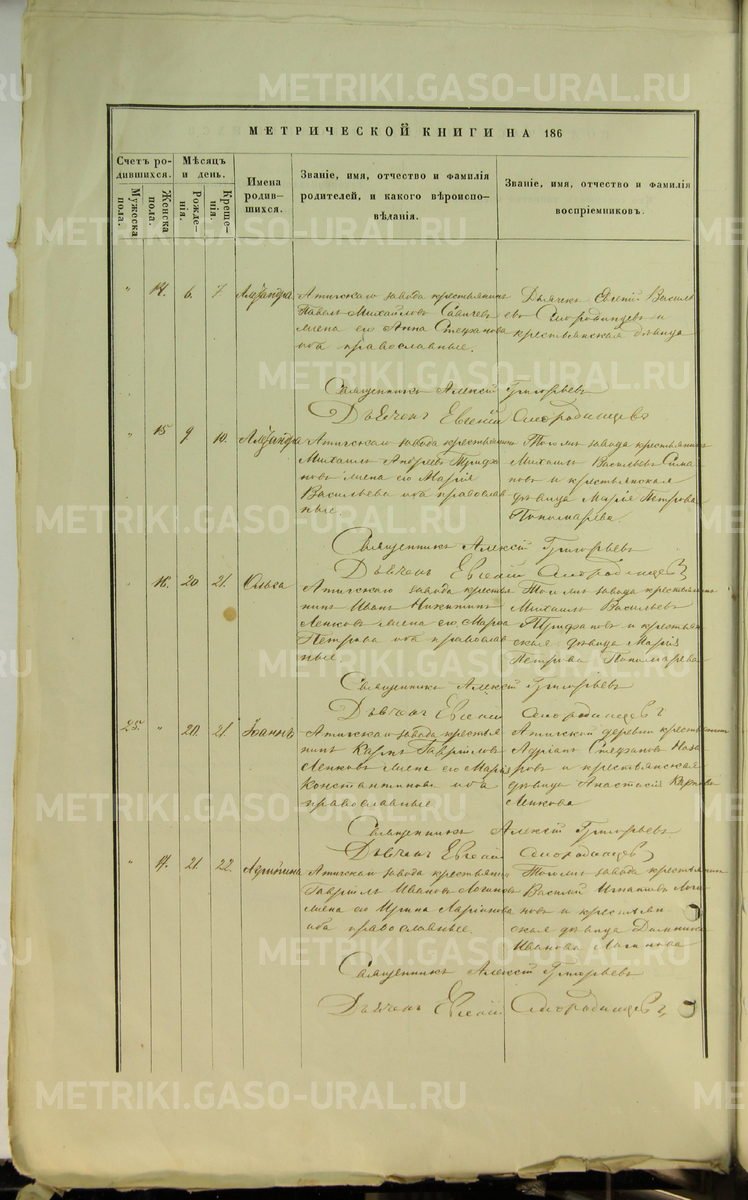 МЕТРИЧЕСКОЙ КНИГИ НА 186
Счетъ ро-
дившихся.
Мужеска
пола.
Женска
пола.
Мѣсяцъ
и день.
Рожде-
нія.
Креще-
нія.
Имена
родив-
шихся.
Званіе, имя, отчество и фамилія
родителей, и какого вѣроиспо-
вѣданія.
Званіе, имя, отчество и фамилія
воспріемниковъ.
" 14. 6. 7
Атигскаго завода крестьянинъ
Павелъ Михайловъ Савичевъ
жена его Анна Стефанова
оба православные.
Дьячекъ Евгеній Василь
евъ Смородинцевъ и
крестьянская дѣвица
Священникъ Алексій Григорьевъ
Дьячокъ Евгеній Смородинцевъ
" 15 9 10.
Атигскаго завода крестьянинъ
Михаилъ Андреевъ Трифа
новъ жена его Марія
Васильева оба православ
ные.
Тогожъ завода крестьянинъ
Михаилъ Васильевъ
новъ и крестьянская
дѣвица Марія Петрова
Пономарева.
Священникъ Алексій Григорьевъ
Дьячокъ Евгеній Смородинцевъ
" 16. 20 21. Ольга
Атигскаго завода крестья
нинъ Иванъ Никитинъ
Ленковъ жена его Марѳа
Петрова оба православ
ные
Тогожъ завода крестьянинъ
Михаилъ Васильевъ
Трифановъ и крестьян
ская дѣвица Марія
Петрова Пономарева
Священникъ Алексій Григорьевъ
Дьячокъ Евгеній Смородинцевъ
25. " 20. 21. Іоаннъ
Атигскаго завода крестья
нинъ Гавріиловъ
Ленковъ жена его Марія
Константинова оба
православные
Атигской деревни крестьянинъ
Адріанъ Стефановъ Наза
ровъ и крестьянская
дѣвица Анастасія
Ленкова
Священникъ Алексій Григорьевъ
Дьячокъ Евгеній Смородинцевъ
" 17. 21. 22.
Атигскаго завода крестьянинъ
Гавріилъ Ивановъ Логиновъ
жена его Ирина
оба православные.
Тогожъ завода крестьянинъ
Василій Игнатьевъ Логи
новъ и крестьян
ская дѣвица Домника
Иванова Логинова
Священникъ Алексій Григорьевъ
Дьячокъ Евгеній Смородинцевъ
METRIKI.GASO-URAL.RU